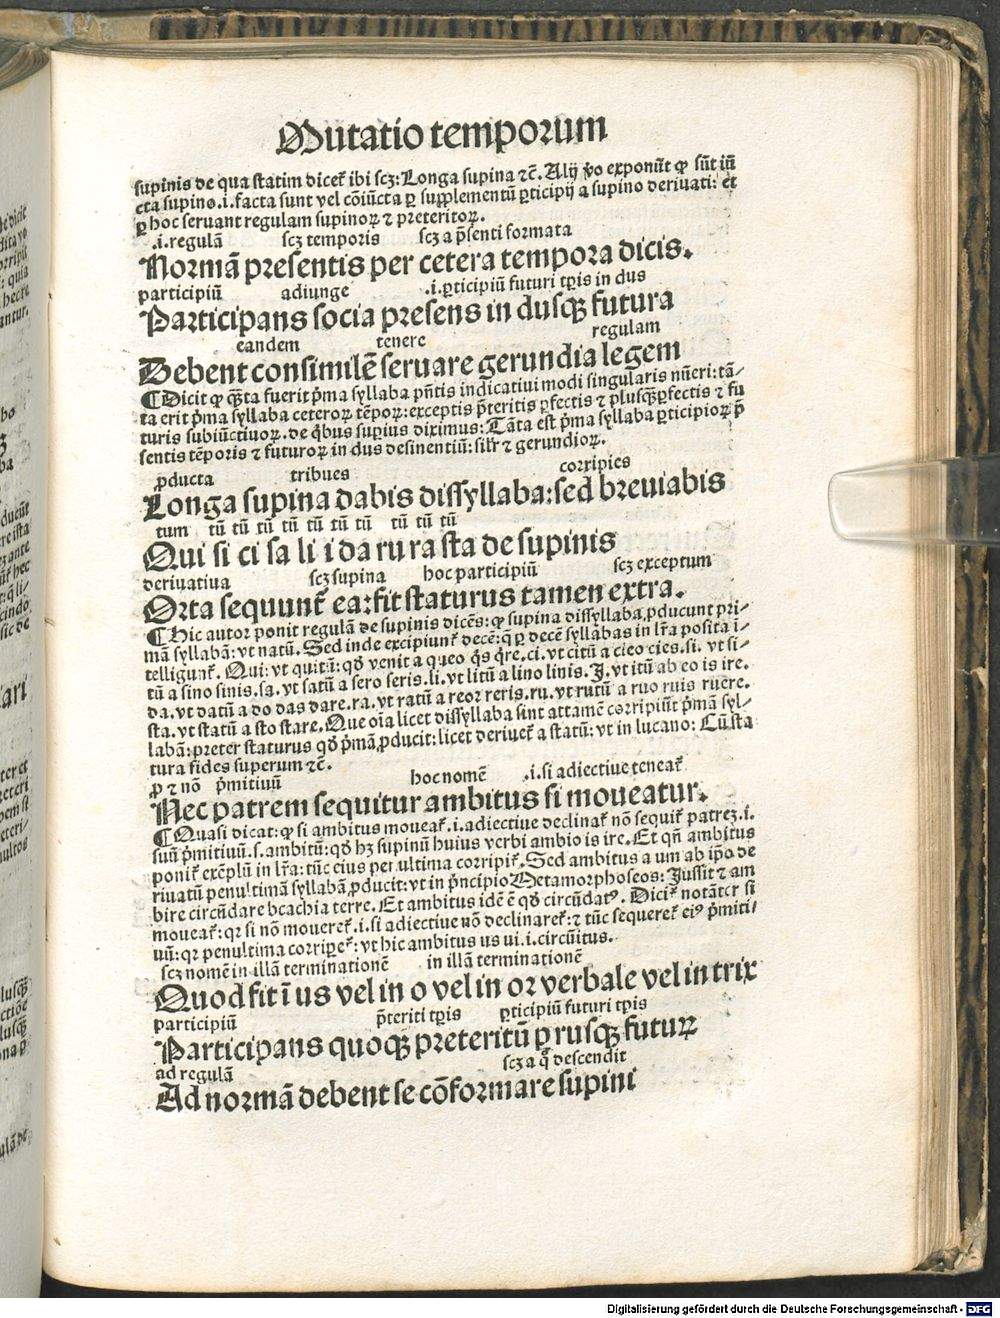 Mutatio temporum
supinis de qua statim dicet᷑ ibi scꝫ: Longa supina ⁊c̄. Alij ꝟo exponūt ꝙ sūt iū
cta supino.i. facta sunt vel cōiūcta ꝑ supplementū ꝑticipij a supino deriuati: et
ꝑ hoc seruant regulam supinoꝝ ⁊ preteritoꝝ.
.i. regulā scꝫ temporis scꝫ a p̄senti formata
Normā presentis per cetera tempora dicis.
participiū adiunge .i. ꝑticipiū futuri tꝑis in dus
Participans socia presens in dusqꝫ futura
eandem tenere regulam
Debent consimilē seruare gerundia legem
¶ Dicit ꝙ q̄ta fuerit p̄ma syllaba pn̄tis indicatiui modi singularis nūeri: tā-
ta erit p̄ma syllaba ceteroꝝ tēpoꝝ: exceptis p̄teritis ꝑfectis ⁊ plusqꝫꝑfectis ⁊ fu
turis subiūctiuoꝝ. de q̄bus suꝑius diximus: Tāta est p̄ma syllaba ꝑticipioꝝ p̄
sentis tēporis ⁊ futuroꝝ in dus desinentiū: silr̄ ⁊ gerundioꝝ.
ꝓducta tribues corripies
Longa supina dabis dissyllaba: sed breuiabis
tum tū tū tū tū tū tū tū tū tū tū
Qui si ci sa li i da ru ra sta de supinis
deriuatiua scꝫ supina hoc participiū scꝫ exceptum
Orta sequunt᷑ ea: fit staturus tamen extra.
¶ Hic autor ponit regulā de supinis dicēs: ꝙ supina dissyllaba ꝓducunt pri-
mā syllabā: vt natū. Sed inde excipiunt᷑ decē: q̄ ꝑ decē syllabas in lr̄a posita i-
telligunt᷑. Qui: vt quitū: qd̄ venit a queo q̄s q̄re. ci. vt citū a cieo cies. si. vt si-
tū a sino sinis. sa. vt satū a sero seris. li. vt litū a lino linis. I. vt itū ab eo is ire.
da. vt datū a do das dare. ra. vt ratū a reor reris. ru. vt rutū a ruo ruis ruere.
sta. vt statū a sto stare. Que oīa licet dissyllaba sint attamē corripiūt p̄mā syl-
labā: preter staturus qd̄ p̄mā ꝓducit: licet deriuet᷑ a statū: vt in lucano: Cū sta
tura fides superum ⁊c̄.
ꝓ ⁊ nō p̄mitiuū hoc nomē .i. si adiectiue teneat᷑
Nec patrem sequitur ambitus si moueatur.
¶ Quasi dicat: ꝙ si ambitus moueat᷑ .i. adiectiue declinat᷑ nō sequit᷑ patreꝫ .i.
suū p̄mitiuū. s. ambitū: qd̄ hꝫ supinū huius verbi ambio is ire. Et qn̄ ambitus
ponit᷑ exēplū in lr̄a: tūc eius penultima corripit᷑. Sed ambitus a um ab ip̄o de
riuatū penultimā syllabā ꝓducit: vt in p̄ncipio Metamorphoseos: Jussit ⁊ am
bire circūdare bcachia terre. Et ambitus idē ē qd̄ circūdatꝰ. Dicit᷑ notāter si
moueat᷑: qr si nō moueret᷑ .i. si adiectiue nō declinaret᷑: ⁊ tūc sequeret᷑ eiꝰ p̄miti-
uū: qr penultima corriperet᷑: vt hic ambitus us ui. i. circūitus.
scꝫ nomē in illā terminationē in illā terminationē
Quod fit ī us vel in o vel in or verbale vel in trix
participiū p̄teriti tꝑis ꝑticipiū futuri tꝑis
Participans quoqꝫ preteritū ꝑ rusqꝫ futuꝝ
ad regulā scꝫ a q̊ descendit
Ad normā debent se cōformare supini
Digitalisierung gefördert durch die Deutsche Forschungsgemeinschaft - DFG